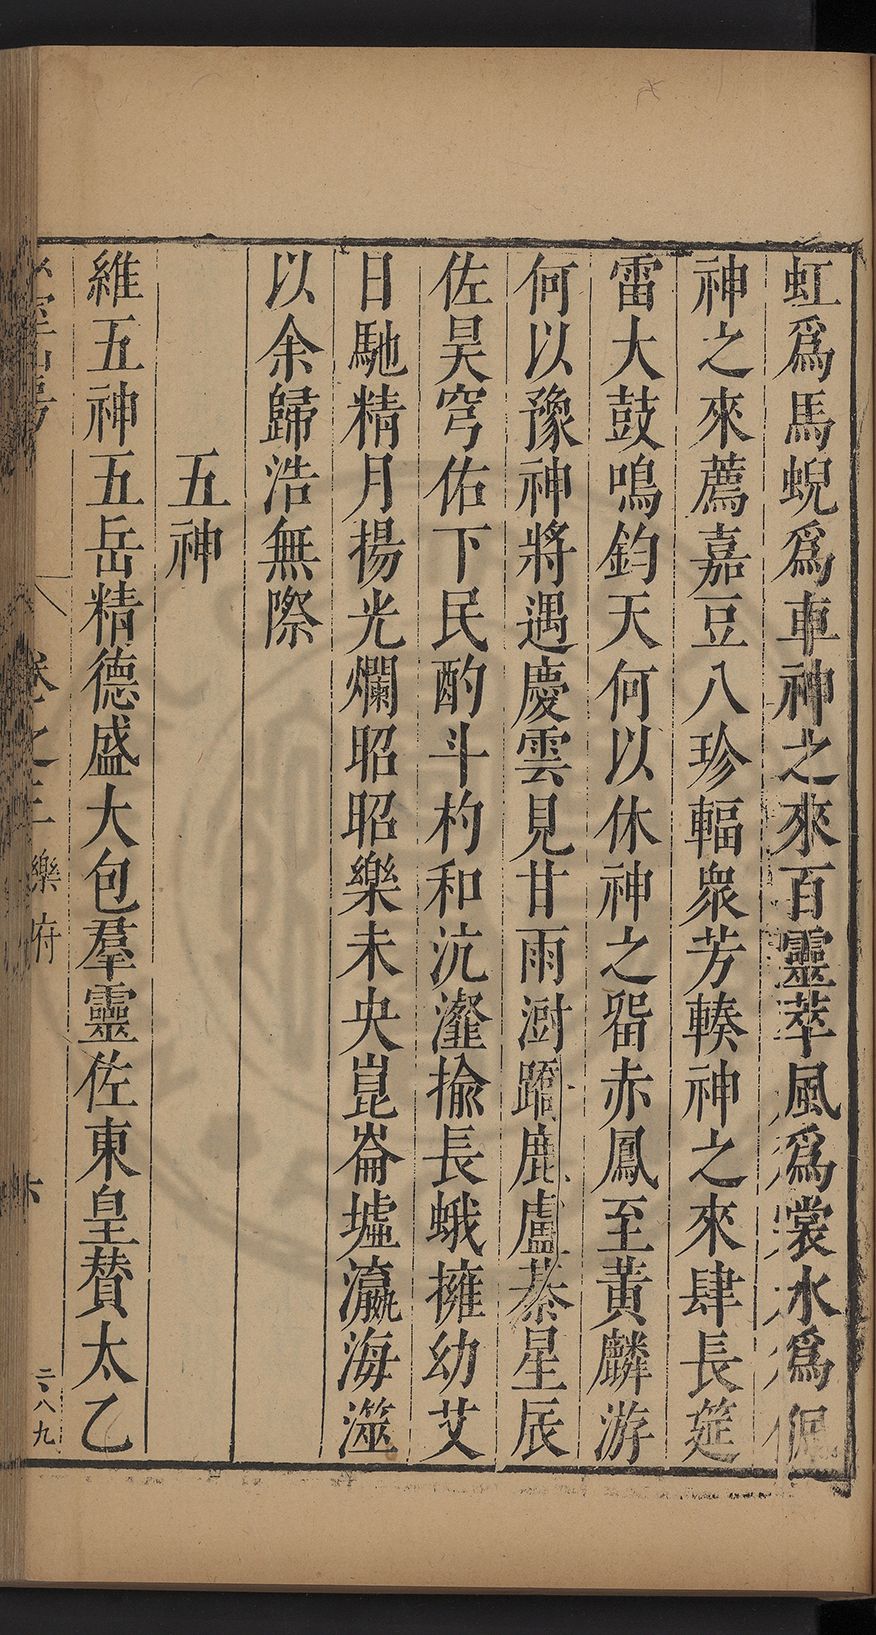 虹爲馬蜺爲車神之來百靈萃風爲裳水爲佩
神之來薦嘉豆八珍輻衆芳輳神之來肆長筵
雷大鼓鳴鈞天何以休神之畱赤鳳至黃麟游
何以豫神將遇慶雲見甘雨澍躋鹿盧綦星辰
佐昊穹佑下民酌斗杓和沆瀣揄長蛾擁幼艾
日馳精月揚光爛昭昭樂未央崑崙墟瀛海澨
以余歸浩無際
五神
維五神五岳精德盛大包羣靈佐東皇贊太乙
卷之三 樂府 六 二八九